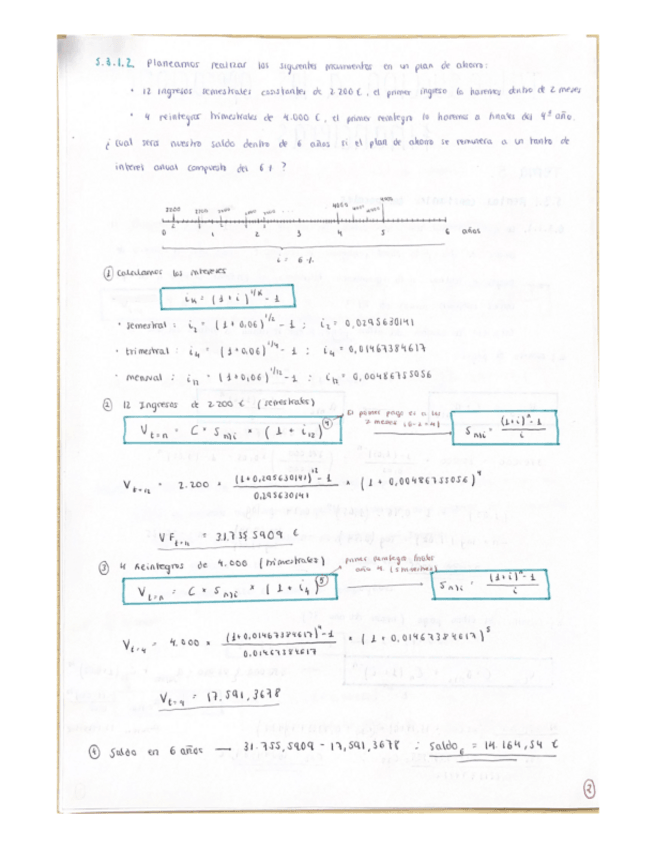 5.3.1.2. Planeamos realizar los siguientes movimientos en un plan de ahorro:
• 12 ingresos semestrales constantes de 2.200 €, el primer ingreso lo haremos dentro de 2 meses
• 4 reintegros trimestrales de 4.000 €, el primer reintegro lo haremos a finales del 4º año.
¿Cual sera nuestro saldo dentro de 6 años si el plan de ahorro se remunera a un tanto de
interes anual compuesto del 6%?
2200 2200 4000
0 1 2 3 4 5 6 años
i = 6%
① Calculamos los intereses
iₖ = (1+i)^1/k - 1
• semestral: i₂ = (1+0,06)^1/2 - 1 ; i₂ = 0,0295630141
• trimestral: i₄ = (1+0,06)^1/4 - 1 ; i₄ = 0,01467384617
• mensual: i₁₂ = (1+0,06)^1/12 - 1 ; i₁₂ = 0,00486755056
② 12 Ingresos de 2.200 € (semestrales)
El primer pago es a los
2 meses (6-2=4)
V t=n = C * S n⌉i * (1 + i₁₂)^④
S n⌉i = (1+i)ⁿ-1 / i
V t=12 = 2.200 * (1+0,295630141)^12 - 1 / 0,295630141 * (1 + 0,00486755056)^4
VF t=n = 31.755,5909 €
③ 4 Reintegros de 4.000 (trimestrales)
primer reintegro finales
año 4
V t=n = C * S n⌉i * (1 + i₄)^⑤
S n⌉i = (1+i)ⁿ-1 / i
V t=4 = 4.000 * (1+0,01467384617)^4 - 1 / 0.01467384617 * (1 + 0,01467384617)^5
V t=4 = 17.591,3678
④ Saldo en 6 años → 31.755,5909 - 17,591,3678 ; Saldo₆ = 14.164,54 €
2